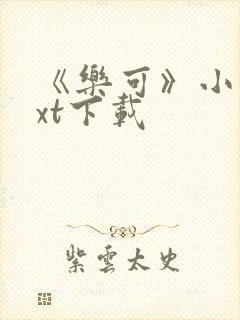 《樂可》小
xt下載
紫雲太史